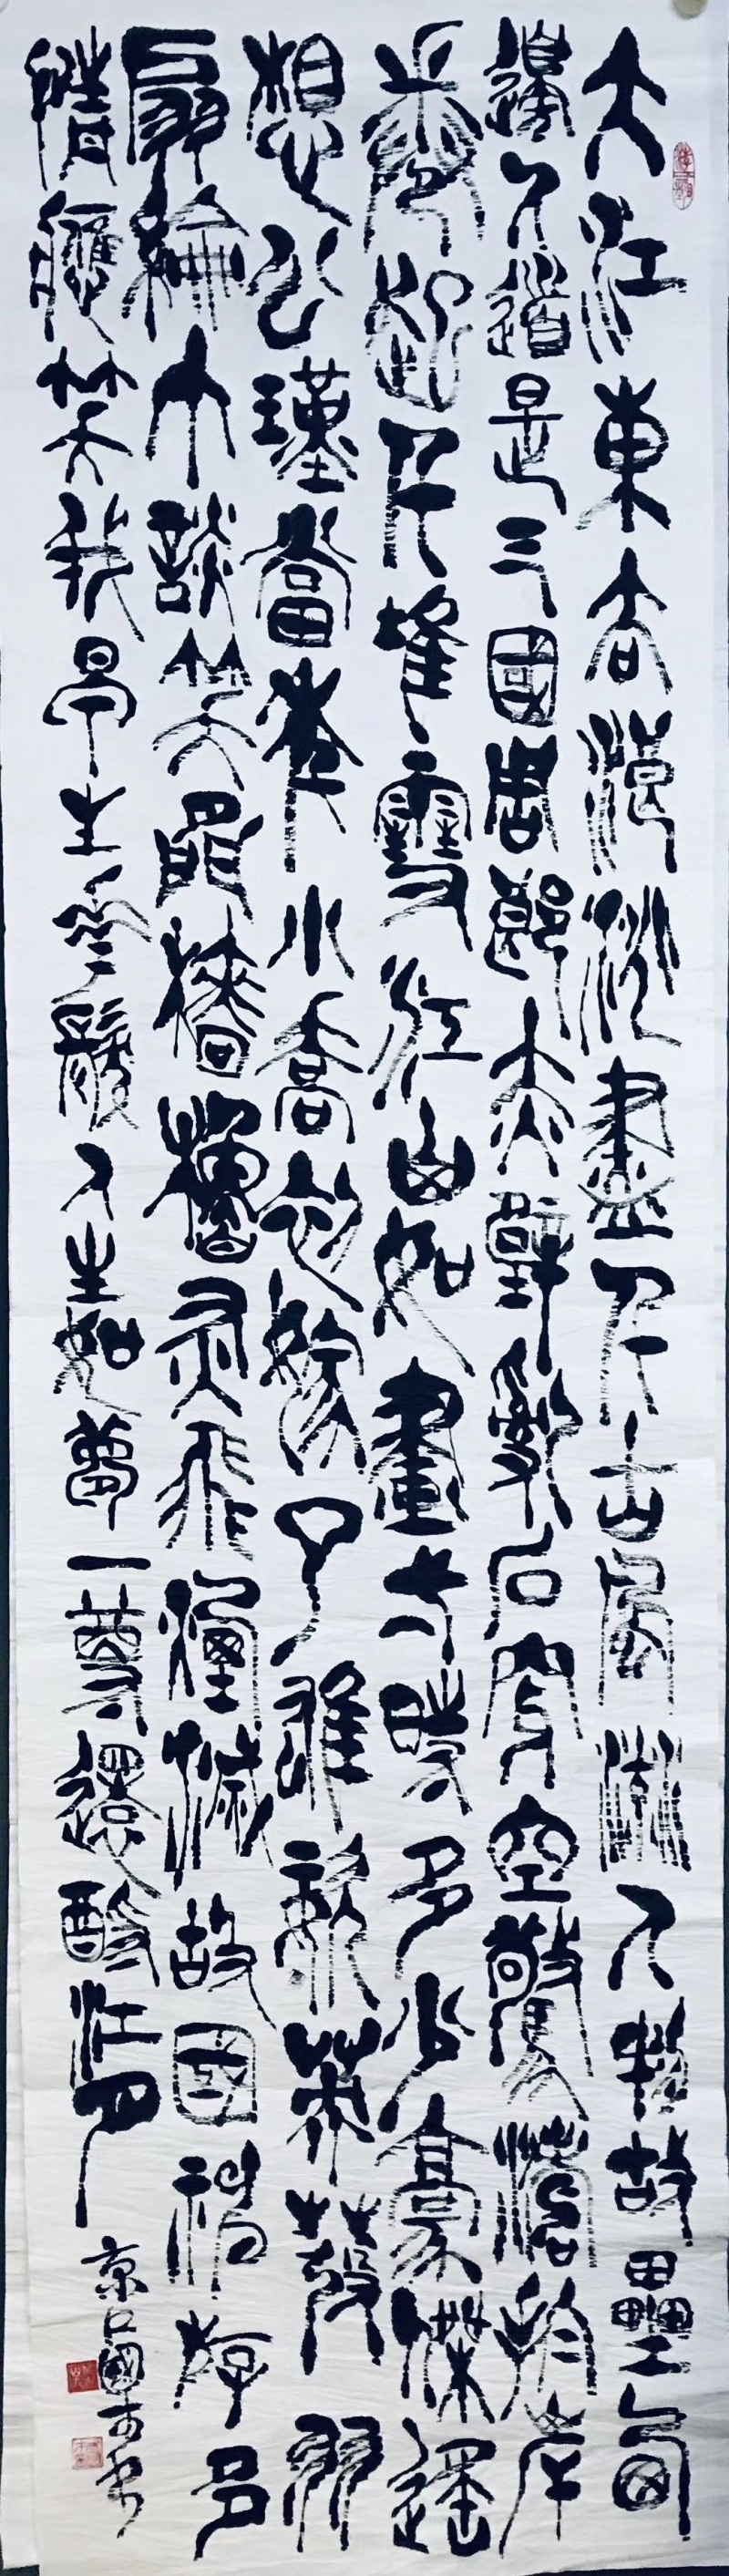 大江東去浪淘盡千古風流人物故壘西
邊人道是三國周郎赤壁亂石穿空驚濤拍岸
卷起千堆雪江山如畫一時多少豪傑遙
想公瑾當年小喬初嫁了雄姿英發羽
扇綸巾談笑間檣櫓灰飛煙滅故國神游多
情應笑我早生華髮人生如夢一尊還酹江月
京口國